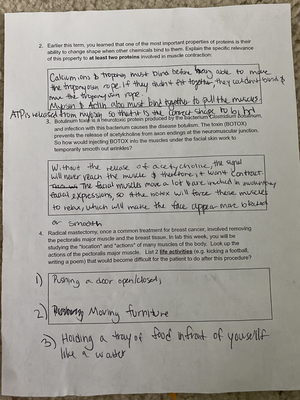 2. Earlier this term, you learned that one of the most important properties of proteins is their
ability to change shape when other chemicals bind to them. Explain the specific relevance
of this property to at least two proteins involved in muscle contraction:
Calcium ions & troponin must bind before being able to move
the tropomyosin rope. If they didn't fit together, they
move the tropomyosin rope.
Myosin & Actin also must bind together to pull the muscles.
ATP is released from myosin so that it's the correct shape to bind.
3. Botulinum toxin is a neurotoxic protein produced by the bacterium Clostridium botulinum,
and infection with this bacterium causes the disease botulism. The toxin (BOTOX)
prevents the release of acetylcholine from axon endings at the neuromuscular junction.
So how would injecting BOTOX into the muscles under the facial skin work to
temporarily smooth out wrinkles?
Without the release of acetylcholine, the signal
will never reach the muscle & therefore, it won't contract.
The facial muscles move a lot
facial expressions, so the botox will force these muscles
to relax, which will make the face appear more
or smooth
4. Radical mastectomy, once a common treatment for breast cancer, involved removing
the pectoralis major muscle and the breast tissue. In lab this week, you will be
studying the "location" and "actions" of many muscles of the body. Look up the
actions of the pectoralis major muscle. List 2 life activities (e.g. kicking a football,
writing a poem) that would become difficult for the patient to do after this procedure?
1) Pushing a door open/closed,
2) Moving furniture
3) Holding a tray of food in front of yourself
like a waiter